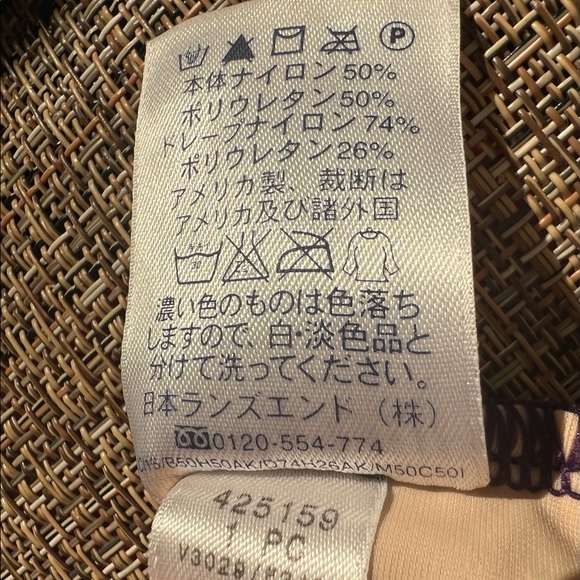 P
本体ナイロン50%
ポリウレタン50%
ドレープナイロン74%
ポリウレタン26%
アメリカ製、裁断は
アメリカ及び諸外国
濃い色のものは色落ち
しますので、白・淡色品と
分けて洗ってください。
日本ランズエンド（株）
0120-554-774
B50H50AK/D74H26AK/M50C50
425159
1 PC
V3029